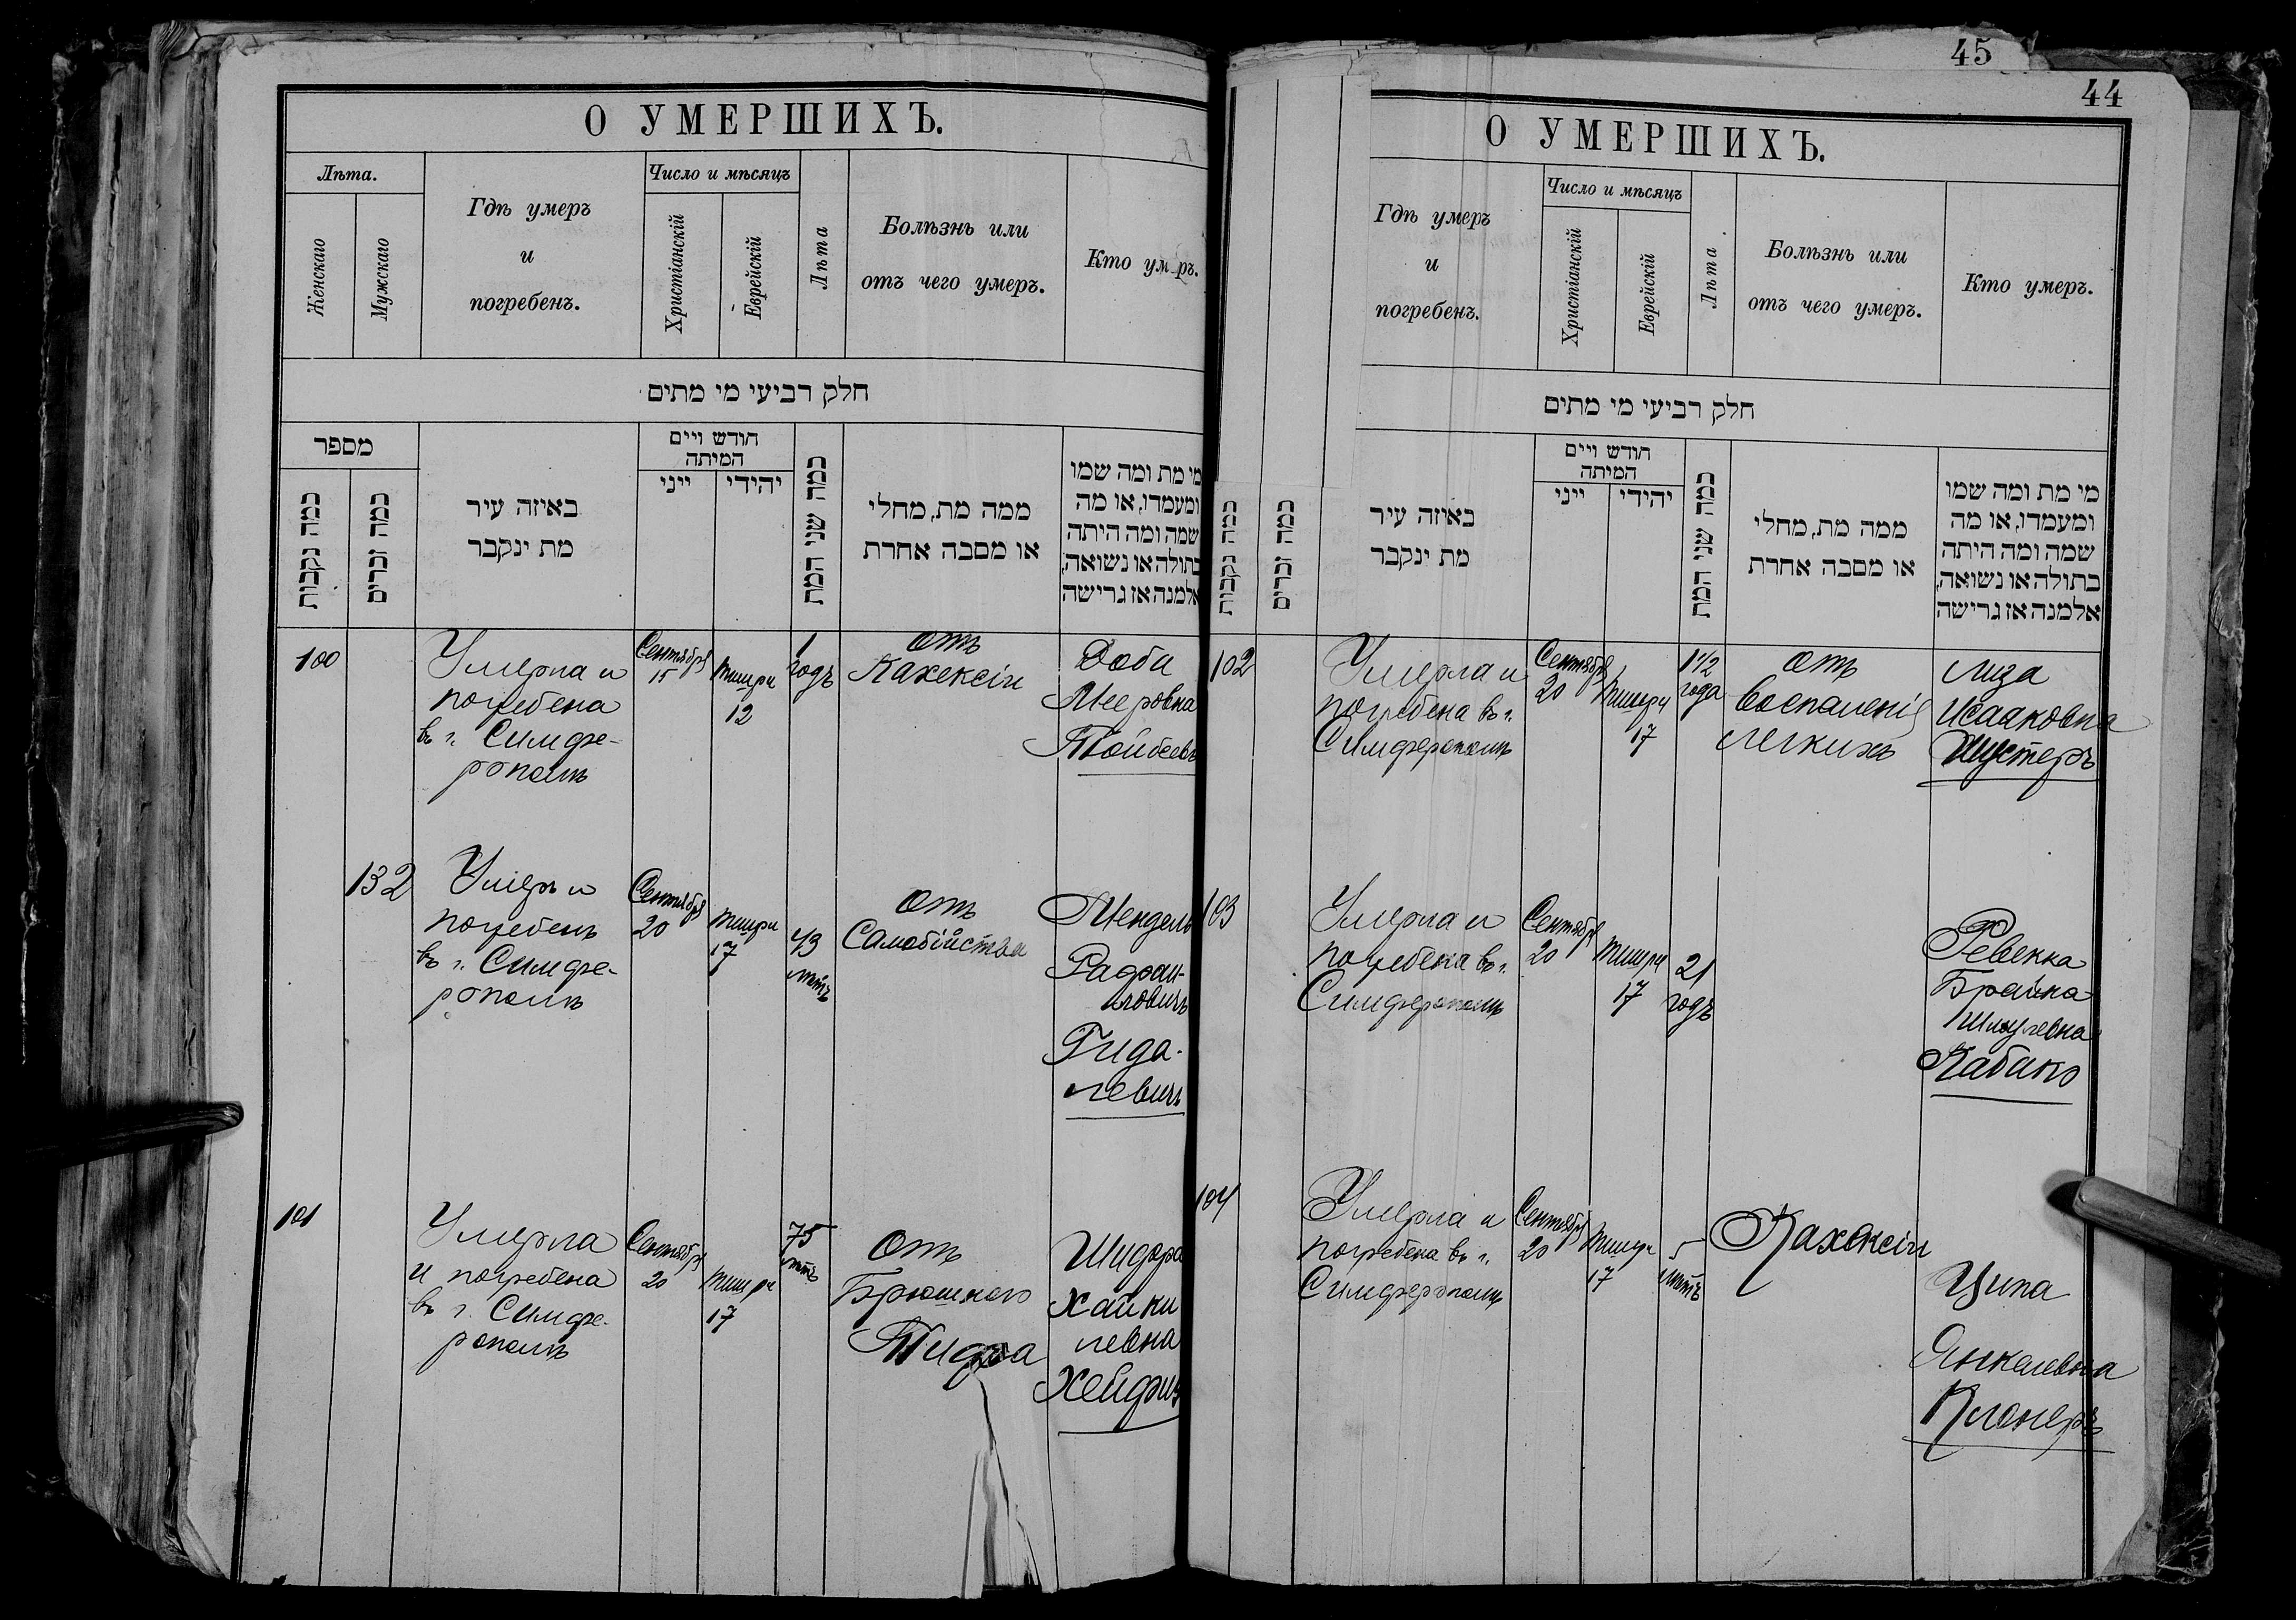 45
44
О УМЕРШИХЪ.
Лѣта.
Женскаго
Мужскаго
Гдѣ умеръ
и
погребенъ.
Число и мѣсяцъ
Христіанскій
Еврейскій
Лѣта
Болѣзнь или
отъ чего умеръ.
Кто ум ръ.
חלק רביעי מי מתים
מספר
כמה נקבות
כמה זכרים
באיזה עיר
מת ינקבר
חודש ויים
המיתה
ייני
יהודי
כמה שני המת
ממה מת, מחלי
או מסבה אחרת
מי מת ומה שמו
ומעמדו, או מה
שמה ומה היתה
בתולה או נשואה,
אלמנה או גרישה
100
Умерла и
погребена
въ г. Симфе-
рополѣ
Сентября
15
Тишри
12
1
годъ
отъ
Кахексіи
Доба
Мееровна
Тойбевъ
132
Умеръ и
погребенъ
въ г. Симфе-
рополѣ
Сентября
20
Тишри
17
43
лѣтъ
отъ
Самобійства
Мендель
Рафаи-
ловичъ
Гида-
левичъ
101
Умерла
и погребена
въ г. Симфе-
рополѣ
Сентября
20
Тишри
17
75
лѣтъ
отъ
Брюшного
Тифа
Шифра
Хайки
левна
Хейфиц
О УМЕРШИХЪ.
Гдѣ умеръ
и
погребенъ.
Число и мѣсяцъ
Христіанскій
Еврейскій
Лѣта
Болѣзнь или
отъ чего умеръ.
Кто умеръ.
חלק רביעי מי מתים
כמה נקבות
כמה זכרים
באיזה עיר
מת ינקבר
חודש ויים
המיתה
ייני
יהודי
כמה שני המת
ממה מת, מחלי
או מסבה אחרת
מי מת ומה שמו
ומעמדו, או מה
שמה ומה היתה
בתולה או נשואה,
אלמנה או גרישה
102
Умерла и
погребена въ г.
Симферополѣ
Сентября
20
Тишри
17
1 1/2
года
отъ
Воспаленія
легкихъ
Лиза
Исааковна
Шустеръ
103
Умерла и
погребена въ г.
Симферополѣ
Сентября
20
Тишри
17
21
годъ
Ревекка
Брайна
Шмулевна
Кабако
104
Умерла и
погребена въ г.
Симферополѣ
Сентября
20
Тишри
17
5
лѣтъ
Кахексіи
Ципа
Янкелевна
Клонеръ